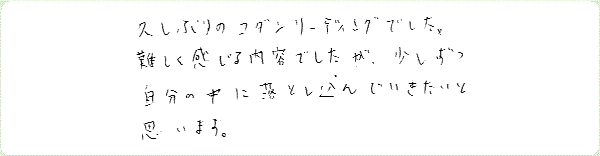 久しぶりのコダシリーディングでした。
難しく感じる内容でしたが、少しずつ
自分の中に落とし込んでいきたいと
思います。